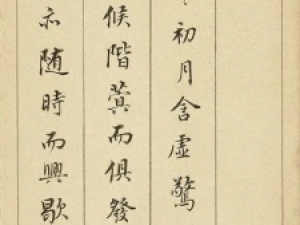 初月含虛驚
候階蓂而俱發
亦随時而興歇